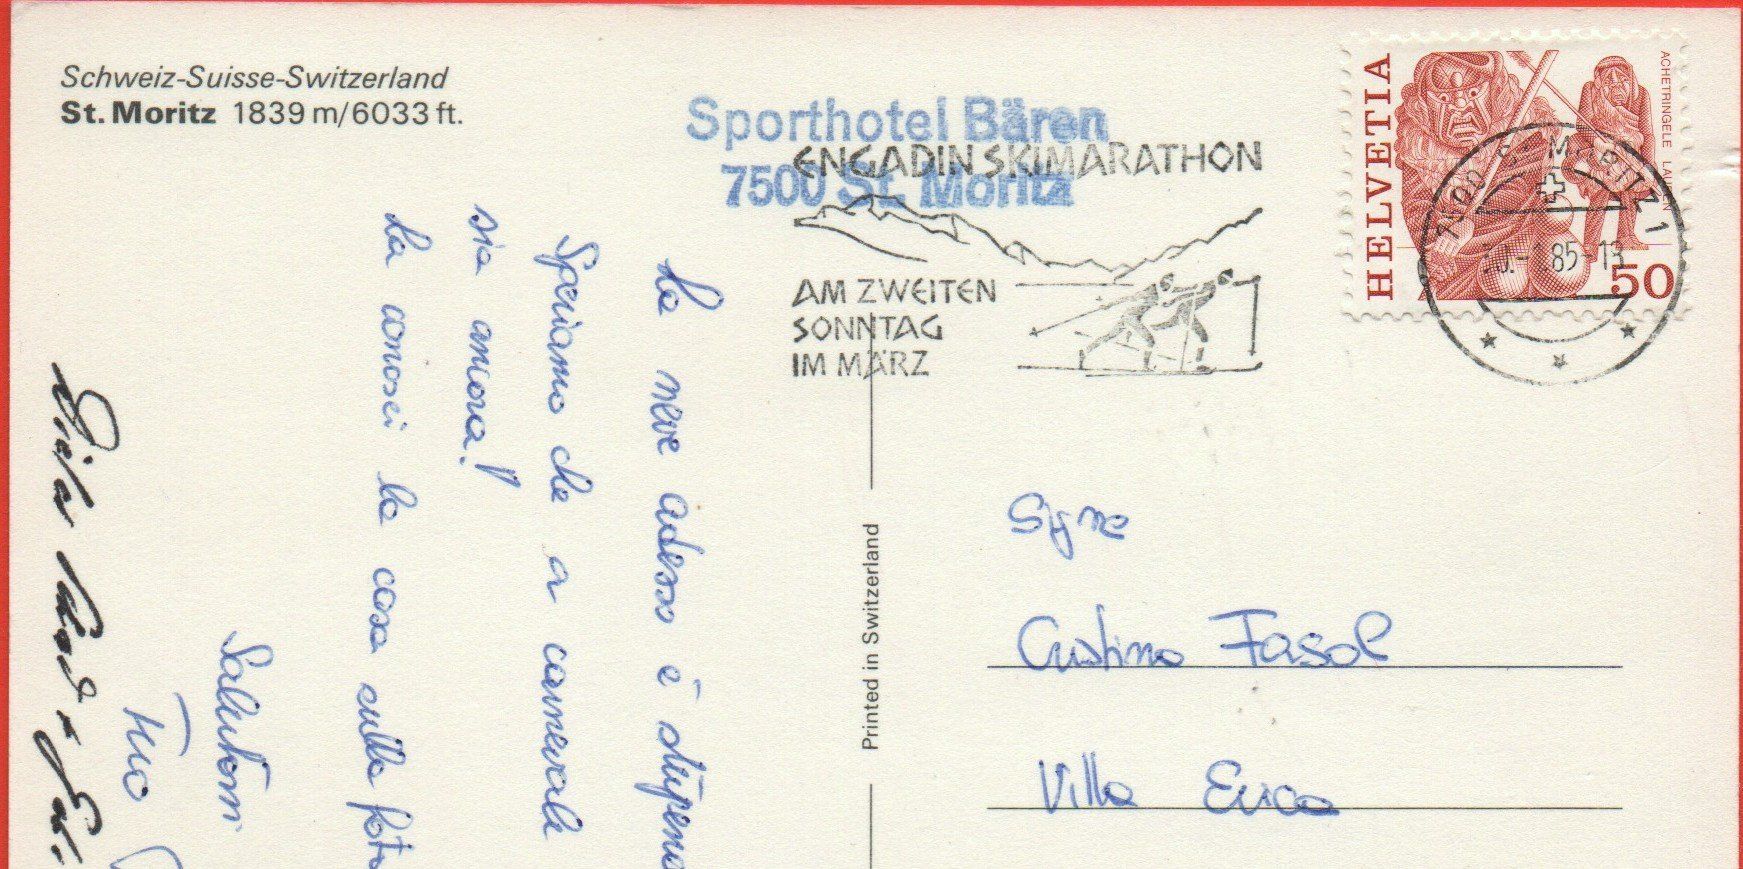 Schweiz-Suisse-Switzerland
St. Moritz 1839 m/6033 ft.
Sporthotel Bären
7500 St. Moritz
ENGADIN SKIMARATHON
AM ZWEITEN
SONNTAG
IM MÄRZ
HELVETIA
ACHETRINGELE LAUPEN
50
7500 ST. MORITZ 1
85-13
La neve adesso è stupen
Speriamo che a carnevale
sia ancora!
La conosci la casa sulla foto
Saluton
Printed in Switzerland
Cristina Fasol
Villa Erica